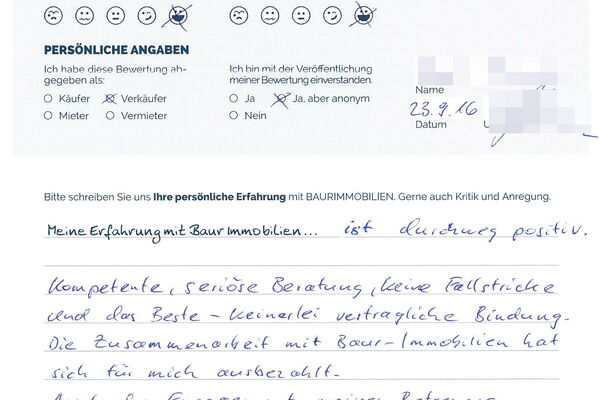 PERSÖNLICHE ANGABEN
Ich habe diese Bewertung ab-
gegeben als:
Käufer Verkäufer
Mieter Vermieter
Ich bin mit der Veröffentlichung
meiner Bewertung einverstanden.
Ja Ja, aber anonym
Nein
Name
23.9.16
Datum
Bitte schreiben Sie uns Ihre persönliche Erfahrung mit BAURIMMOBILIEN. Gerne auch Kritik und Anregung.
Meine Erfahrung mit Baur Immobilien... ist durchweg positiv.
Kompetente, seriöse Beratung, keine Fallstricke
und das Beste – keinerlei vertragliche Bindung.
Die Zusammenarbeit mit Baur-Immobilien hat
sich für mich ausbezahlt.